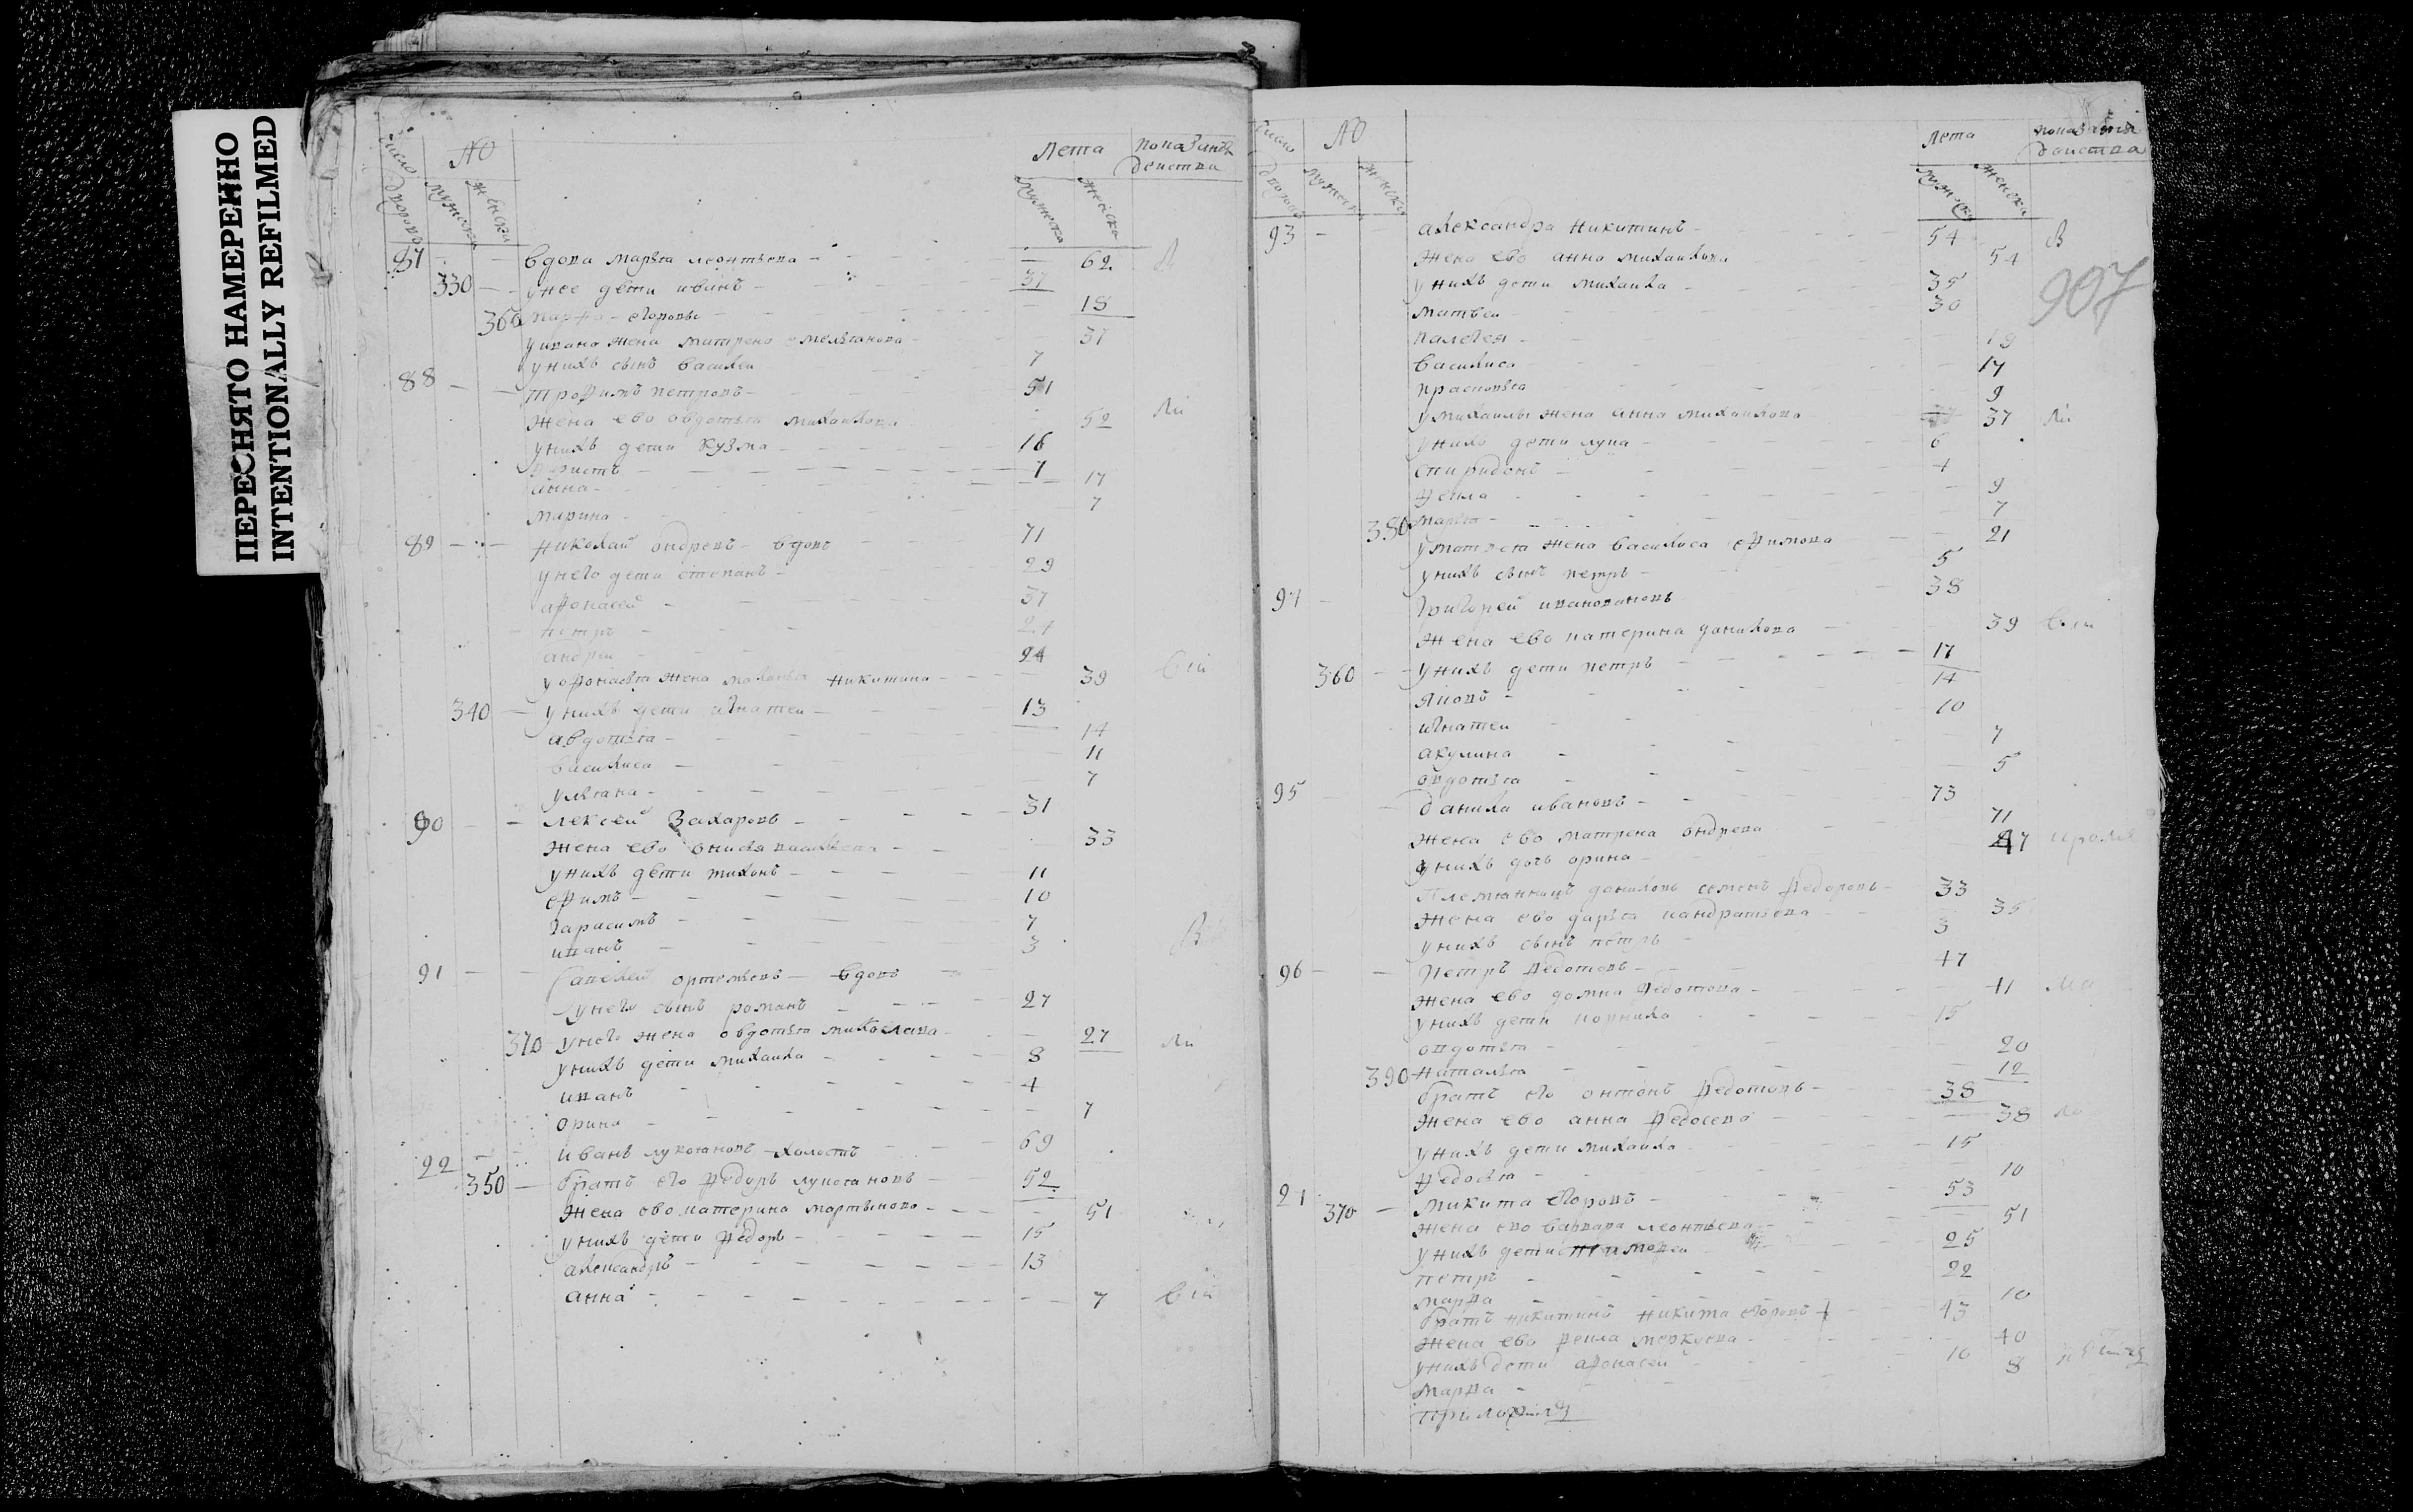 ПЕРЕСНЯТО НАМЕРЕННО
INTENTIONALLY REFILMED
число дворовъ № мужеска женска лета мужеска женска показание действа
87 вдова марья леонтьева 62
330 у нее дети иванъ 37
366 марфа егоровы 18
у ивана жена матрена омельянова 37
у нихъ сынъ василеи 7
88 трофимъ петровъ 51
жена ево овдотья михаилова 52
у нихъ дети кузма 16
7
анна 17
марина 7
89 николай ондревъ вдовъ 71
у него дети степанъ 29
афонасеи 37
петръ
андреи 24
у офонасья жена маланья никитина 39
340 у нихъ дети игнатеи 13
авдотья 14
василиса 11
ульяна 7
90 лексеи захаровъ 31
жена ево онисья васильева 33
у нихъ дети тихонъ 11
ефимъ 10
гарасимъ 7
иванъ 3
91 савелеи ортемьевъ вдовъ
у него сынъ романъ 27
370 у него жена овдотья миколаева 27
у нихъ дети михаила 8
иванъ 4
орина 7
92 иванъ лукояновъ холостъ 69
350 братъ его федоръ лукояновъ 52
жена ево катерина мартынова 51
у нихъ дети федоръ 15
александръ 13
анна 7
число дворовъ № мужеска женска лета мужеска женска показание действа
907
93 александра никитинъ 54
жена ево анна михаилова 54
у нихъ дети михаила 35
матвеи 30
палагея
василиса 17
прасковья 9
у михаилы жена анна михаилова 37
у нихъ дети лука 6
спиридонъ 4
фекла 9
380 марья 7
у матвея жена василиса ефимова 21
у нихъ сынъ петръ 5
94 григореи ивановъ 38
жена ево катерина данилова 39
360 у нихъ дети петръ 17
яковъ 14
игнатеи 10
акулина 7
овдотья 5
95 данила ивановъ 73
жена ево матрена ондрева 71
у нихъ дочь орина 47
племянникъ даниловъ семенъ федоровъ 33
жена ево дарья кандратьева 35
у нихъ сынъ петръ 3
96 петръ федотовъ 47
жена ево домна федотова 41
у нихъ дети корнила 15
овдотья 20
390 наталья 12
братъ его онтонъ федотовъ 38
жена ево анна федосева 38
у нихъ дети михаила 15
федосья 10
370 микита егоровъ 53
жена ево варвара леонтьева 51
у нихъ дети тимофеи 25
петръ 22
марфа 10
братъ никитинъ никита егоровъ 43
жена ево фекла меркуева 40
у нихъ дети афонасеи 10
марфа 8